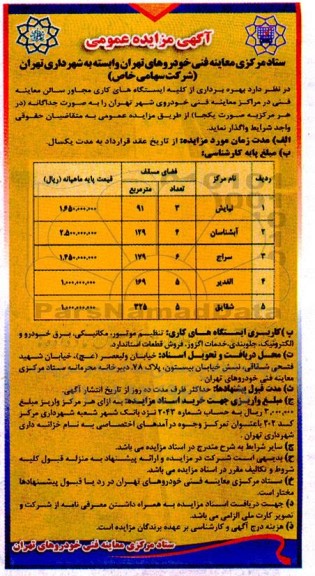 آگهی مزایده عمومی
ستاد مرکزی معاینه فنی خودروهای تهران وابسته به شهرداری تهران
(شرکت سهامی خاص)
در نظر دارد بهره برداری از کلیه ایستگاه های کاری مجاور سالن معاینه
فنی در مراکز معاینه فنی خودروی شهر تهران را به صورت جداگانه (در
هر مرکزبه صورت یکجا) از طریق مزایده عمومی به متقاضیان حقوقی
واجد شرایط واگذار نماید.
الف) مدت زمان مورد مزایده: از تاریخ عقد قرارداد به مدت یکسال.
ب) مبلغ پایه کارشناسی:
ردیف نام مرکز فضای مسقف قیمت پایه ماهیانه (ریال)
تعداد مترمربع
۱ نیایش ۳ ۹۱ ۱,۶۵۰,۰۰۰,۰۰۰
۲ آبشناسان ۴ ۱۲۹ ۲,۵۰۰,۰۰۰,۰۰۰
۳ سراج ۶ ۱۷۹ ۱,۴۵۰,۰۰۰,۰۰۰
۴ الغدیر ۵ ۱۶۹ ۱,۰۰۰,۰۰۰,۰۰۰
۵ شقایق ۵ ۳۲۵ ۱,۰۰۰,۰۰۰,۰۰۰
پ) کاربری ایستگاه های کاری: تنظیم موتور، مکانیکی، برق خودرو و
الکترونیک، جلوبندی، خدمات اگزوز، فروش قطعات استاندارد.
ت) محل دریافت و تحویل اسناد: خیابان ولیعصر (عج)، خیابان شهید
فتحی شقاقی، نبش خیابان بیستون، پلاک ۷۸، دبیرخانه محرمانه ستاد مرکزی
معاینه فنی خودروهای تهران.
ث) مدت قبول پیشنهادها: حداکثر ظرف مدت ده روز از تاریخ انتشار آگهی.
ج) مبلغ واریزی جهت خرید اسناد مزایده: به ازای هر مرکز واریز مبلغ
۳,۰۰۰,۰۰۰ ریال به حساب شماره ۲۰۴۳ نزد بانک شهر شعبه شهرداری مرکز
کد ۲۰۴ باعنوان تمرکز وجوه درآمدهای اختصاصی به نام خزانه داری
شهرداری تهران.
چ) سایر شرایط به شرح مندرج در اسناد مزایده می باشد.
ح) بدیهی است شرکت در مزایده و ارائه پیشنهاد به منزله قبول کلیه
شروط و تکالیف مقرر در اسناد مزایده می باشد.
خ) ستاد مرکزی معاینه فنی خودروهای تهران در رد یا قبول پیشنهادها
مختار است.
د) جهت دریافت اسناد مزایده به همراه داشتن معرفی نامه از شرکت و
تصویر کارت ملی الزامی می باشد.
ذ) هزینه درج آگهی و کارشناسی بر عهده برندگان مزایده است.
ستاد مرکزی معاینه فنی خودروهای تهران